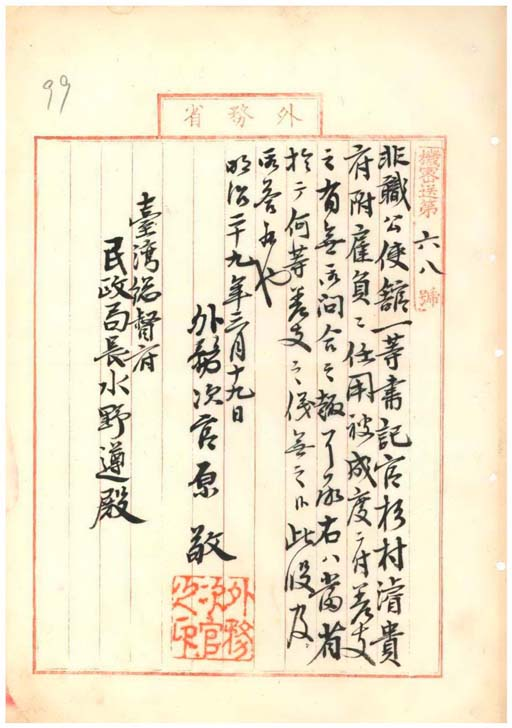 99
外務省
機密送第六八號
非職公使館一等書記官杉村濬貴
府附雇員ニ任用被成度ニ付差支
之有無御問合之趣了承右ハ當省
於テ何等差支之儀無之候此段及
御答候也
明治二十九年三月十九日
外務次官原敬
外務次官之印
臺灣総督府
民政局長水野遵殿